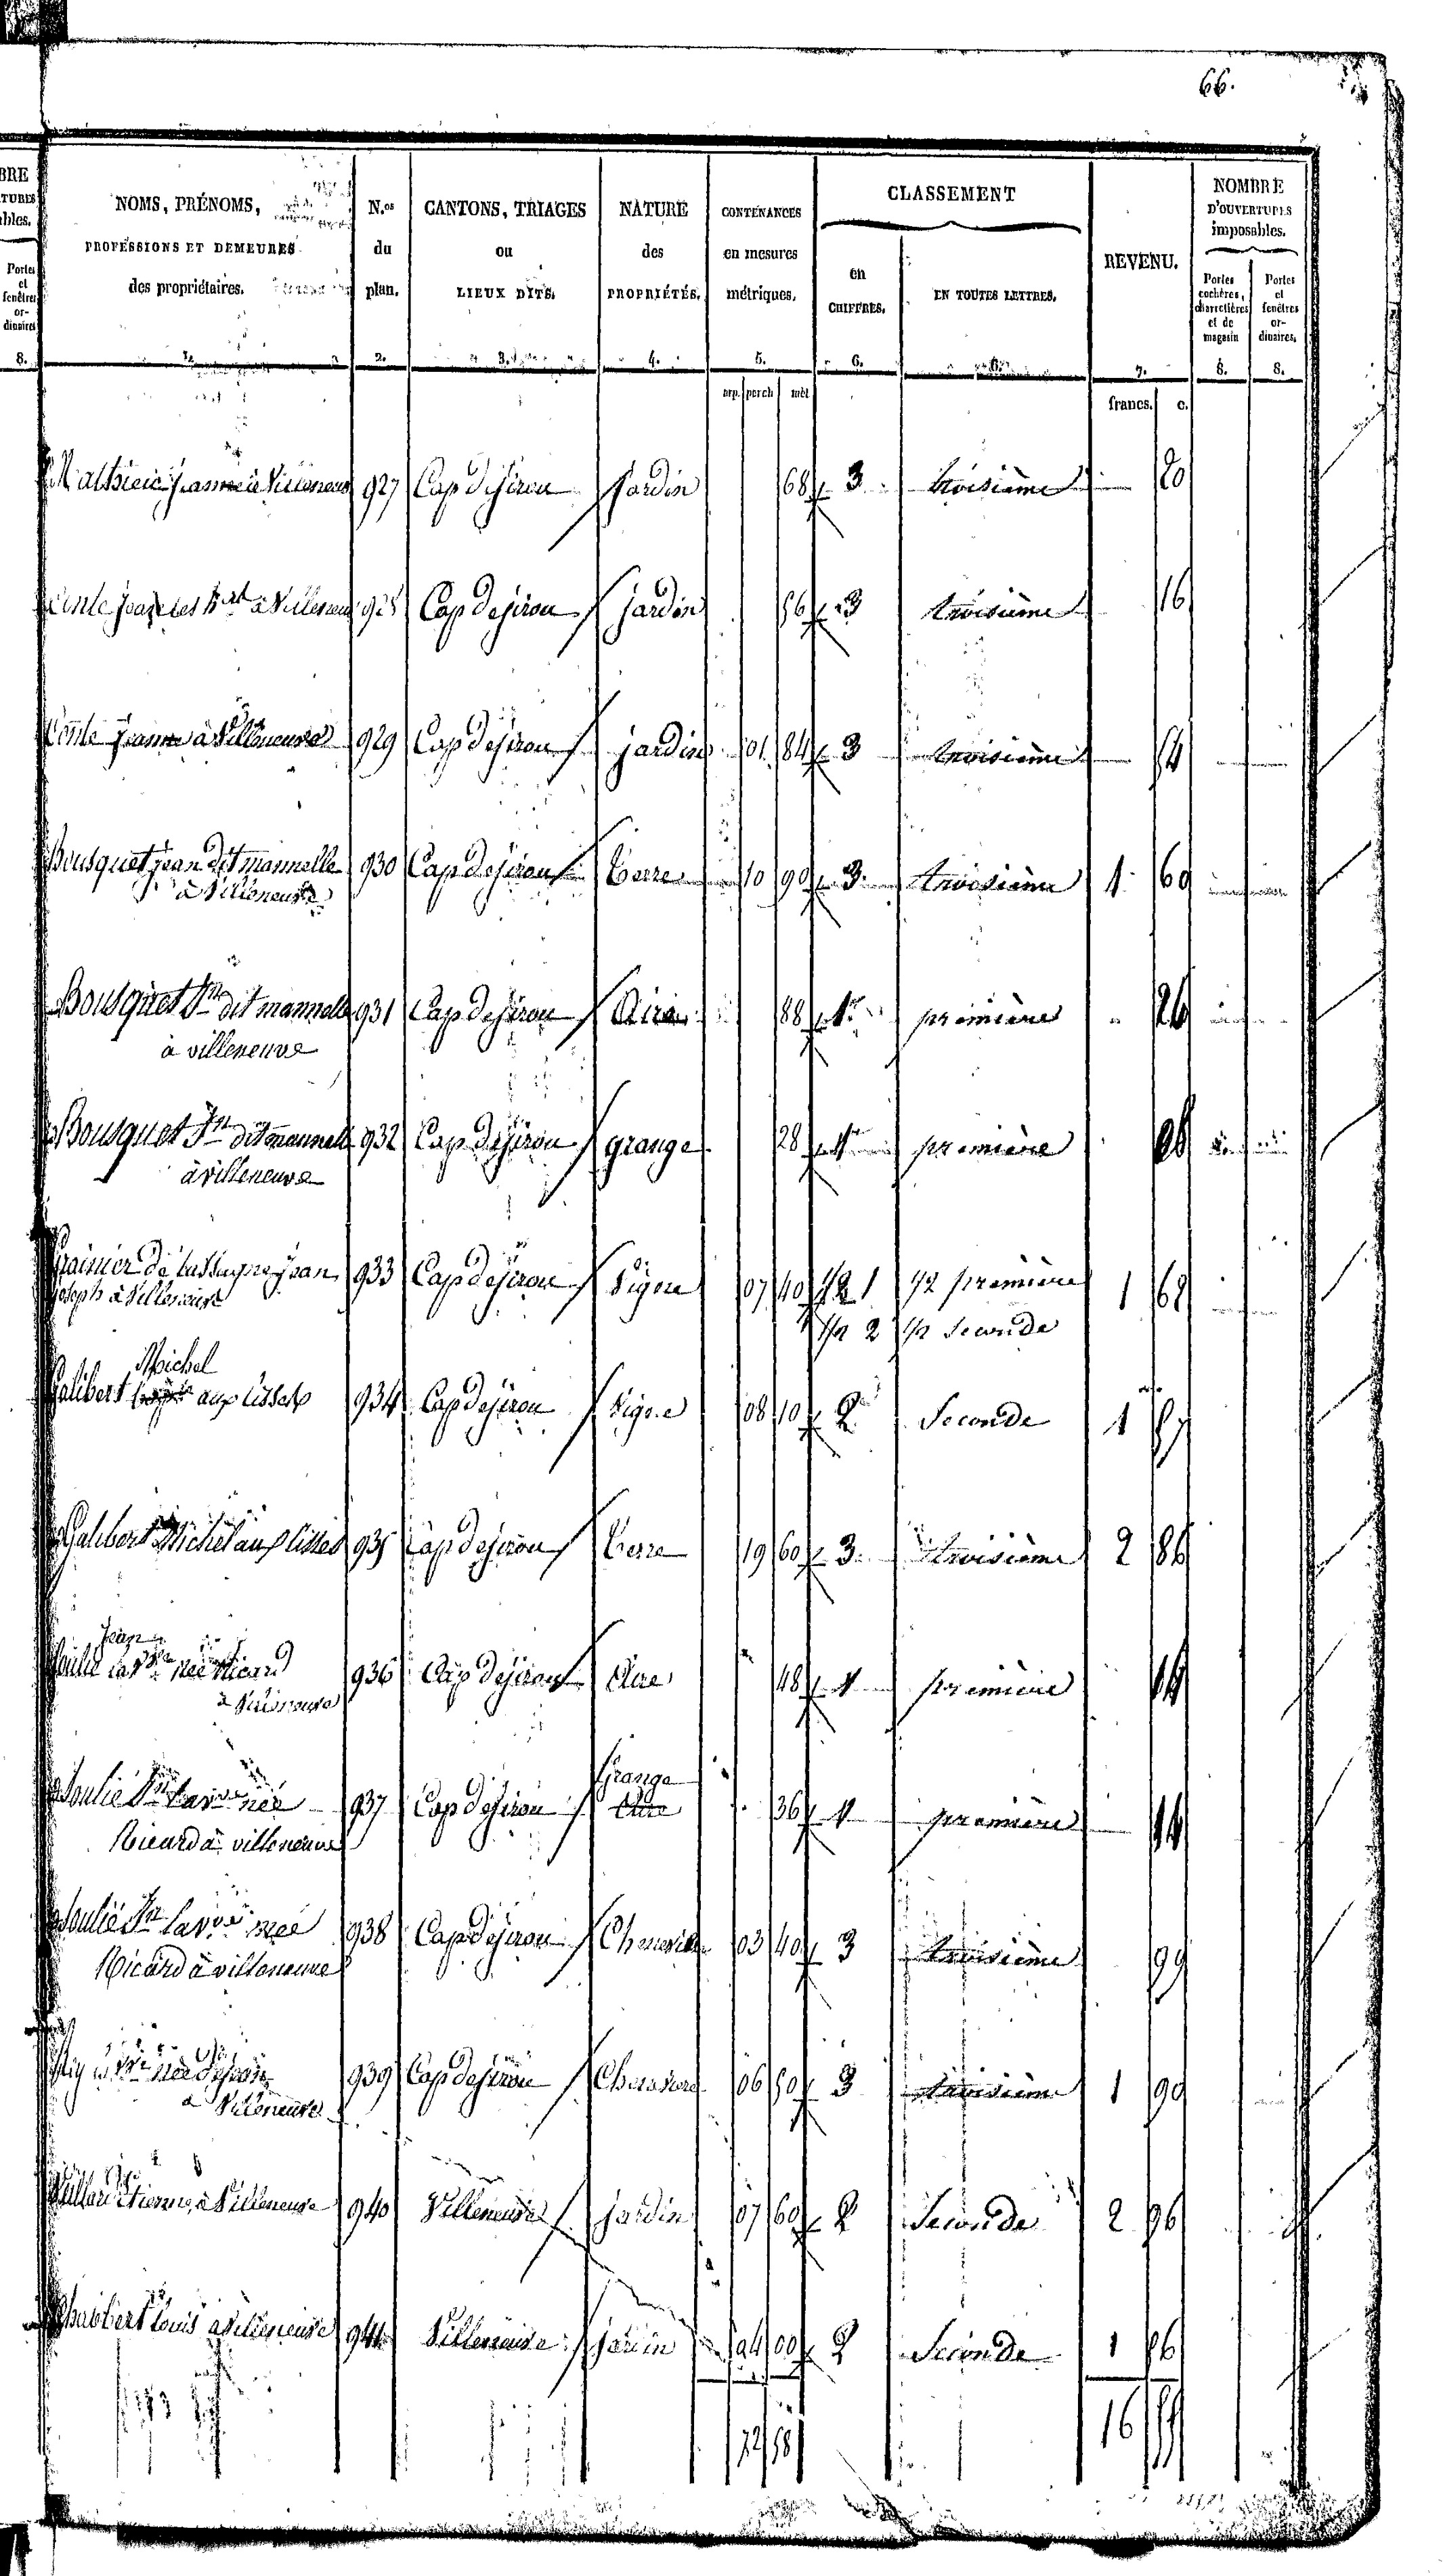 66.
BRE
TURES
bles.
Portes
et
fenêtres
or-
dinaires
8.
NOMS, PRÉNOMS,
PROFESSIONS ET DEMEURES
des propriétaires.
N.os
du
plan.
2.
CANTONS, TRIAGES
ou
LIEUX DITS.
3.
NATURE
des
PROPRIÉTÉS.
4.
CONTENANCES
en mesures
métriques.
5.
arp. perch mèt
CLASSEMENT
en
CHIFFRES.
6.
EN TOUTES LETTRES.
REVENU.
7.
francs. c.
NOMBRE
D'OUVERTURES
imposables.
Portes
cochères,
charretières
et de
magasin
8.
Portes
et
fenêtres
or-
dinaires.
8.
927 Cap dejirou jardin 68 3 troisième 20
à Villeneuve 928 Cap dejirou jardin 56 3 troisième 16
Conte jeanne à Villeneuve 929 Cap dejirou jardin 01 84 3 troisième 54
Bousquet jean dit mannelle 930 Cap dejirou Terre 10 90 3 troisième 1 60
à Villeneuve
Bousquet Jn dit mannelle 931 Cap dejirou 88 1re première 26
à villeneuve
Bousquet Jn dit mannelle 932 Cap dejirou grange 28 1re première
à villeneuve
jean 933 Cap dejirou Vigne 07 40 1/2 1 1/2 première 1 68
joseph à Villeneuve 1/2 2 1/2 Seconde
Michel
Galibert aux lisses 934 Cap dejirou Vigne 08 10 2 Seconde 1
Galibert Michel aux lisses 935 Cap dejirou Terre 19 60 3 troisième 2 86
Jean
Soulié la Vve née Ricard 936 Cap dejirou Aire 48 1 première 14
à Villeneuve
Grange
Soulié Jn la Vve née 937 Cap dejirou Aire 36 1 première 14
Ricard à villeneuve
Soulié Jn la Vve née 938 Cap dejirou 03 40 3 troisième 99
Ricard à villeneuve
939 Cap dejirou 06 50 3 troisième 1 90
à Villeneuve
Etienne à Villeneuve 940 Villeneuve jardin 07 60 2 Seconde 2 96
Louis à Villeneuve 941 Villeneuve jardin 04 00 2 Seconde 1 56
72 58 16